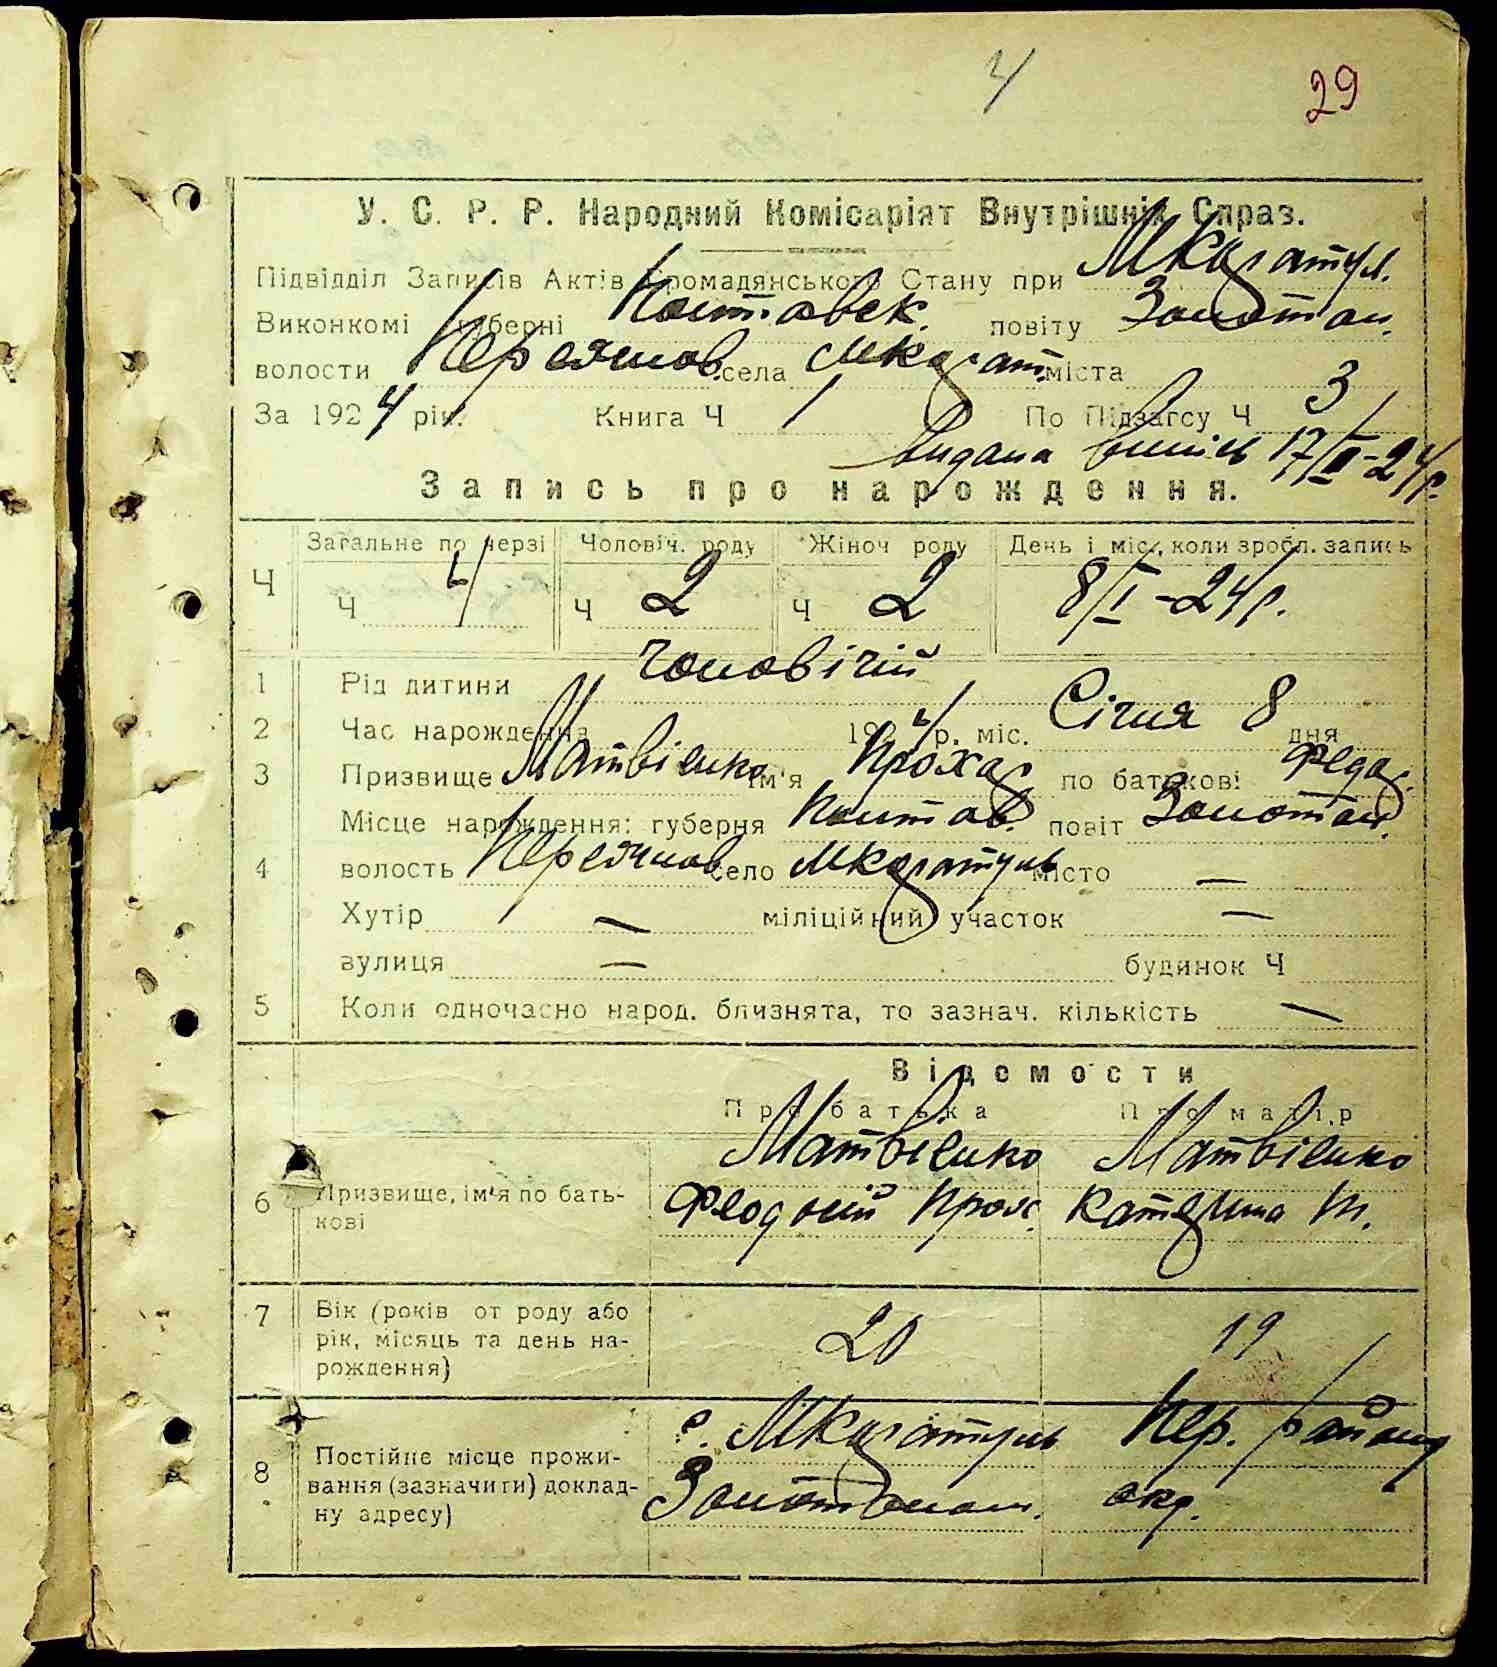 4
29
У. С. Р. Р. Народний Комісаріят Внутрішніх Справ.
Підвідділ Записів Актів Громадянського Стану при
Виконкомі губерні Полтавськ. повіту Золотон.
волости села міста
За 1924 рік. Книга Ч 1 По Підзагсу Ч 3
Видана випись 17/II-24р.
Запись про нарождення.
Загальне по черзі Чоловіч. роду Жіноч роду День і міс., коли зробл. запись
Ч Ч 4 Ч 2 Ч 2 8/I-24р.
1 Рід дитини Чоловічий
2 Час нарождення 1924 р. міс. Січня 8 дня
3 Призвище Матвієнко ім'я Прохор по батькові Федор.
Місце нарождення: губерня Полтав. повіт Золотон.
4 волость село місто —
Хутір — міліційний участок —
вулиця — будинок Ч
5 Коли одночасно народ. близнята, то зазнач. кількість —
Відомости
Про батька Про матір
Матвієнко Матвієнко
6 Призвище, ім'я по бать- Феодосій Прох. Катерина
кові
7 Вік (років от роду або
рік, місяць та день на- 20 19
рождення)
с. Пер. району
8 Постійне місце прожи-
вання (зазначити) доклад- окр.
ну адресу)